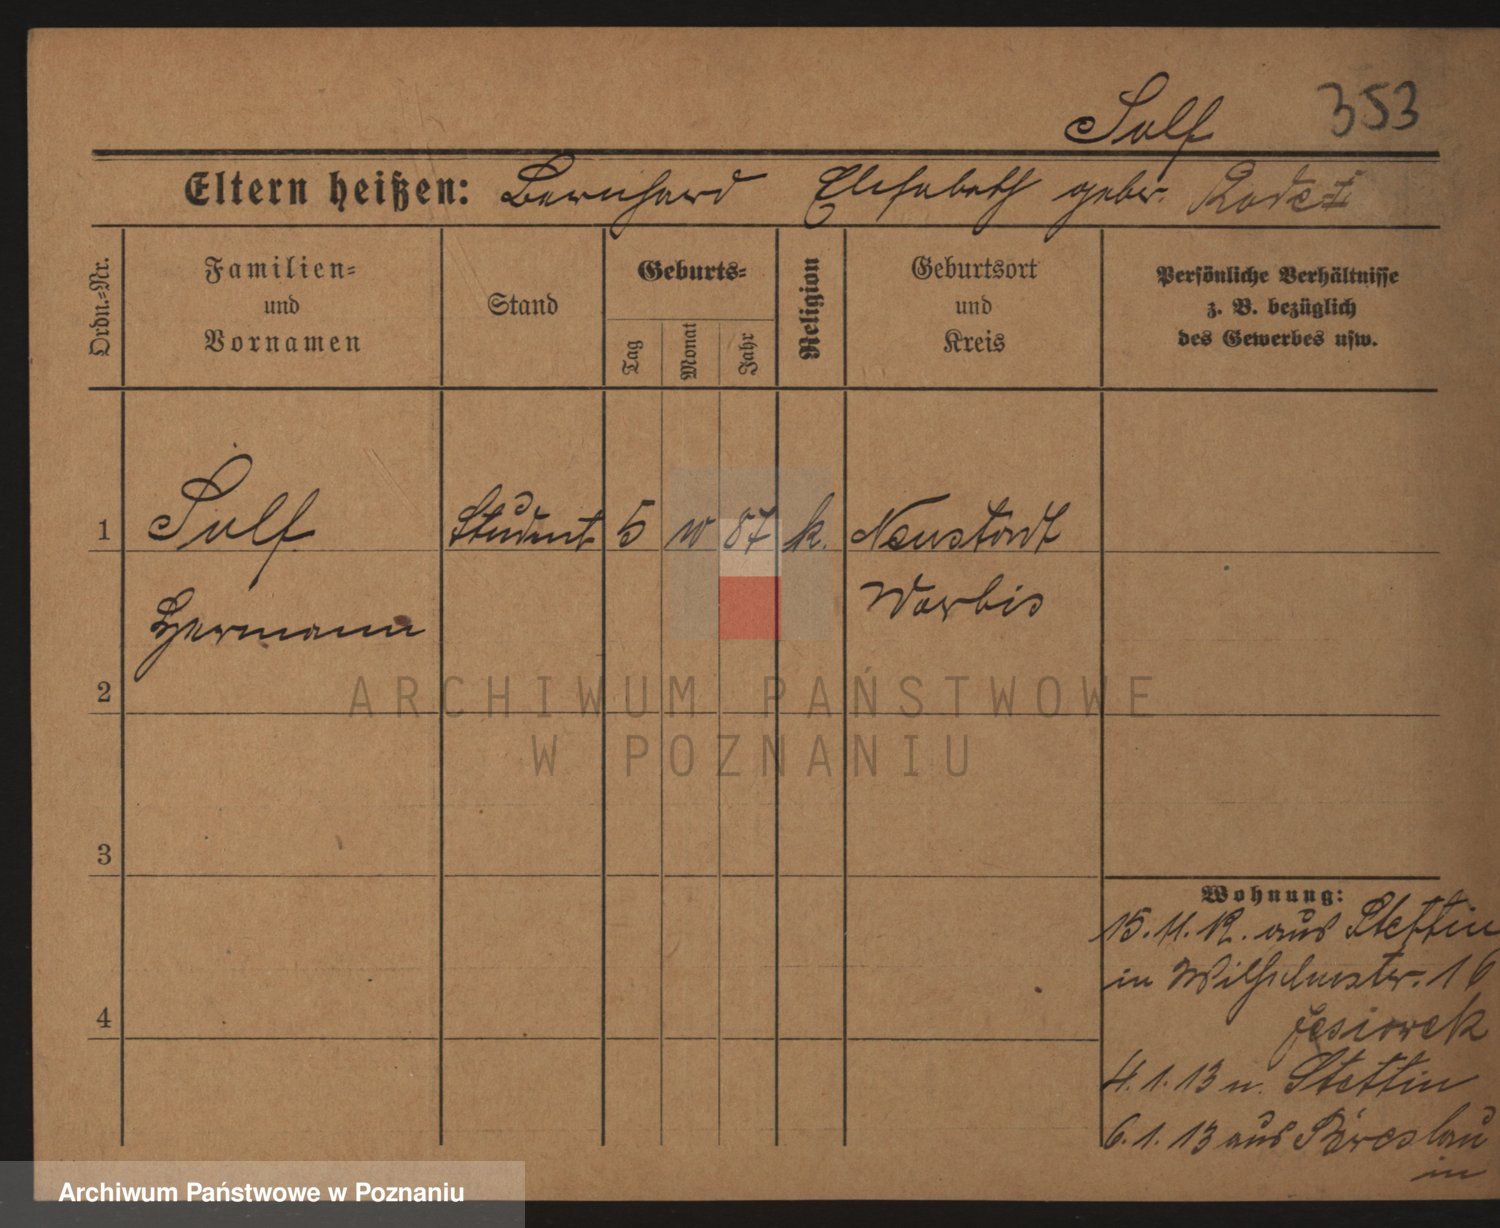 Solf 353
Eltern heißen: Bernhard Elisabeth gebr. Rodet
Ordn.=Nr.
Familien=
und
Vornamen
Stand
Geburts=
Tag
Monat
Jahr
Religion
Geburtsort
und
Kreis
Persönliche Verhältnisse
z. B. bezüglich
des Gewerbes usw.
1 Solf Student 5 87 k. Neustadt
Hermann Worbis
2
ARCHIWUM PAŃSTWOWE
W POZNANIU
3
Wohnung:
15.11.12. aus Stettin
in Wilhelmstr. 16
Jesiorek
4
4.1.13 n. Stettin
6.1.13 aus Breslau
in
Archiwum Państwowe w Poznaniu